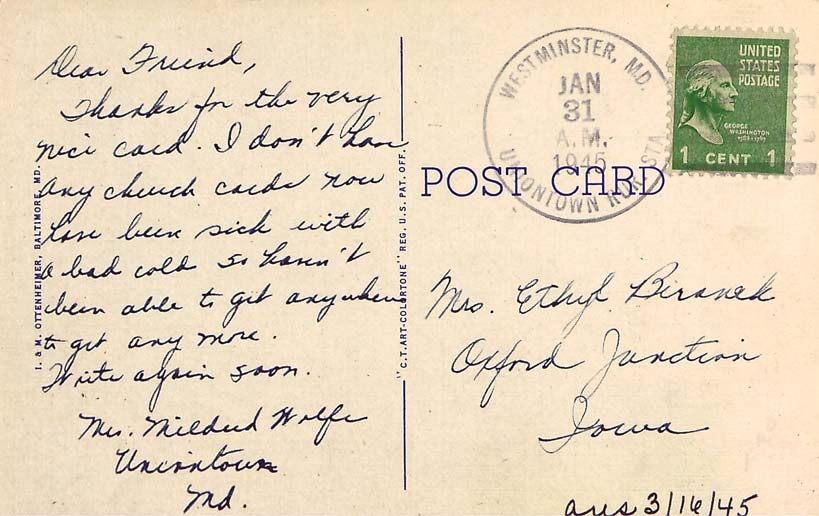 Dear Friend,
Thanks for the very
nice card. I don't have
any church cards now
have been sick with
a bad cold so haven't
been able to git anywhere
to get any more.
Write again soon.
Mrs. Mildred Wolfe
Uniontown
Md.
I. & M. OTTENHEIMER, BALTIMORE, MD.
"C.T. ART-COLORTONE" REG. U.S. PAT. OFF.
POST CARD
WESTMINSTER, MD.
JAN
31
A.M.
1945
UNIONTOWN RUR. STA.
UNITED
STATES
POSTAGE
GEORGE
WASHINGTON
1 CENT 1
Mrs. Ethyl Beranek
Oxford Junction
Iowa
ans 3/16/45